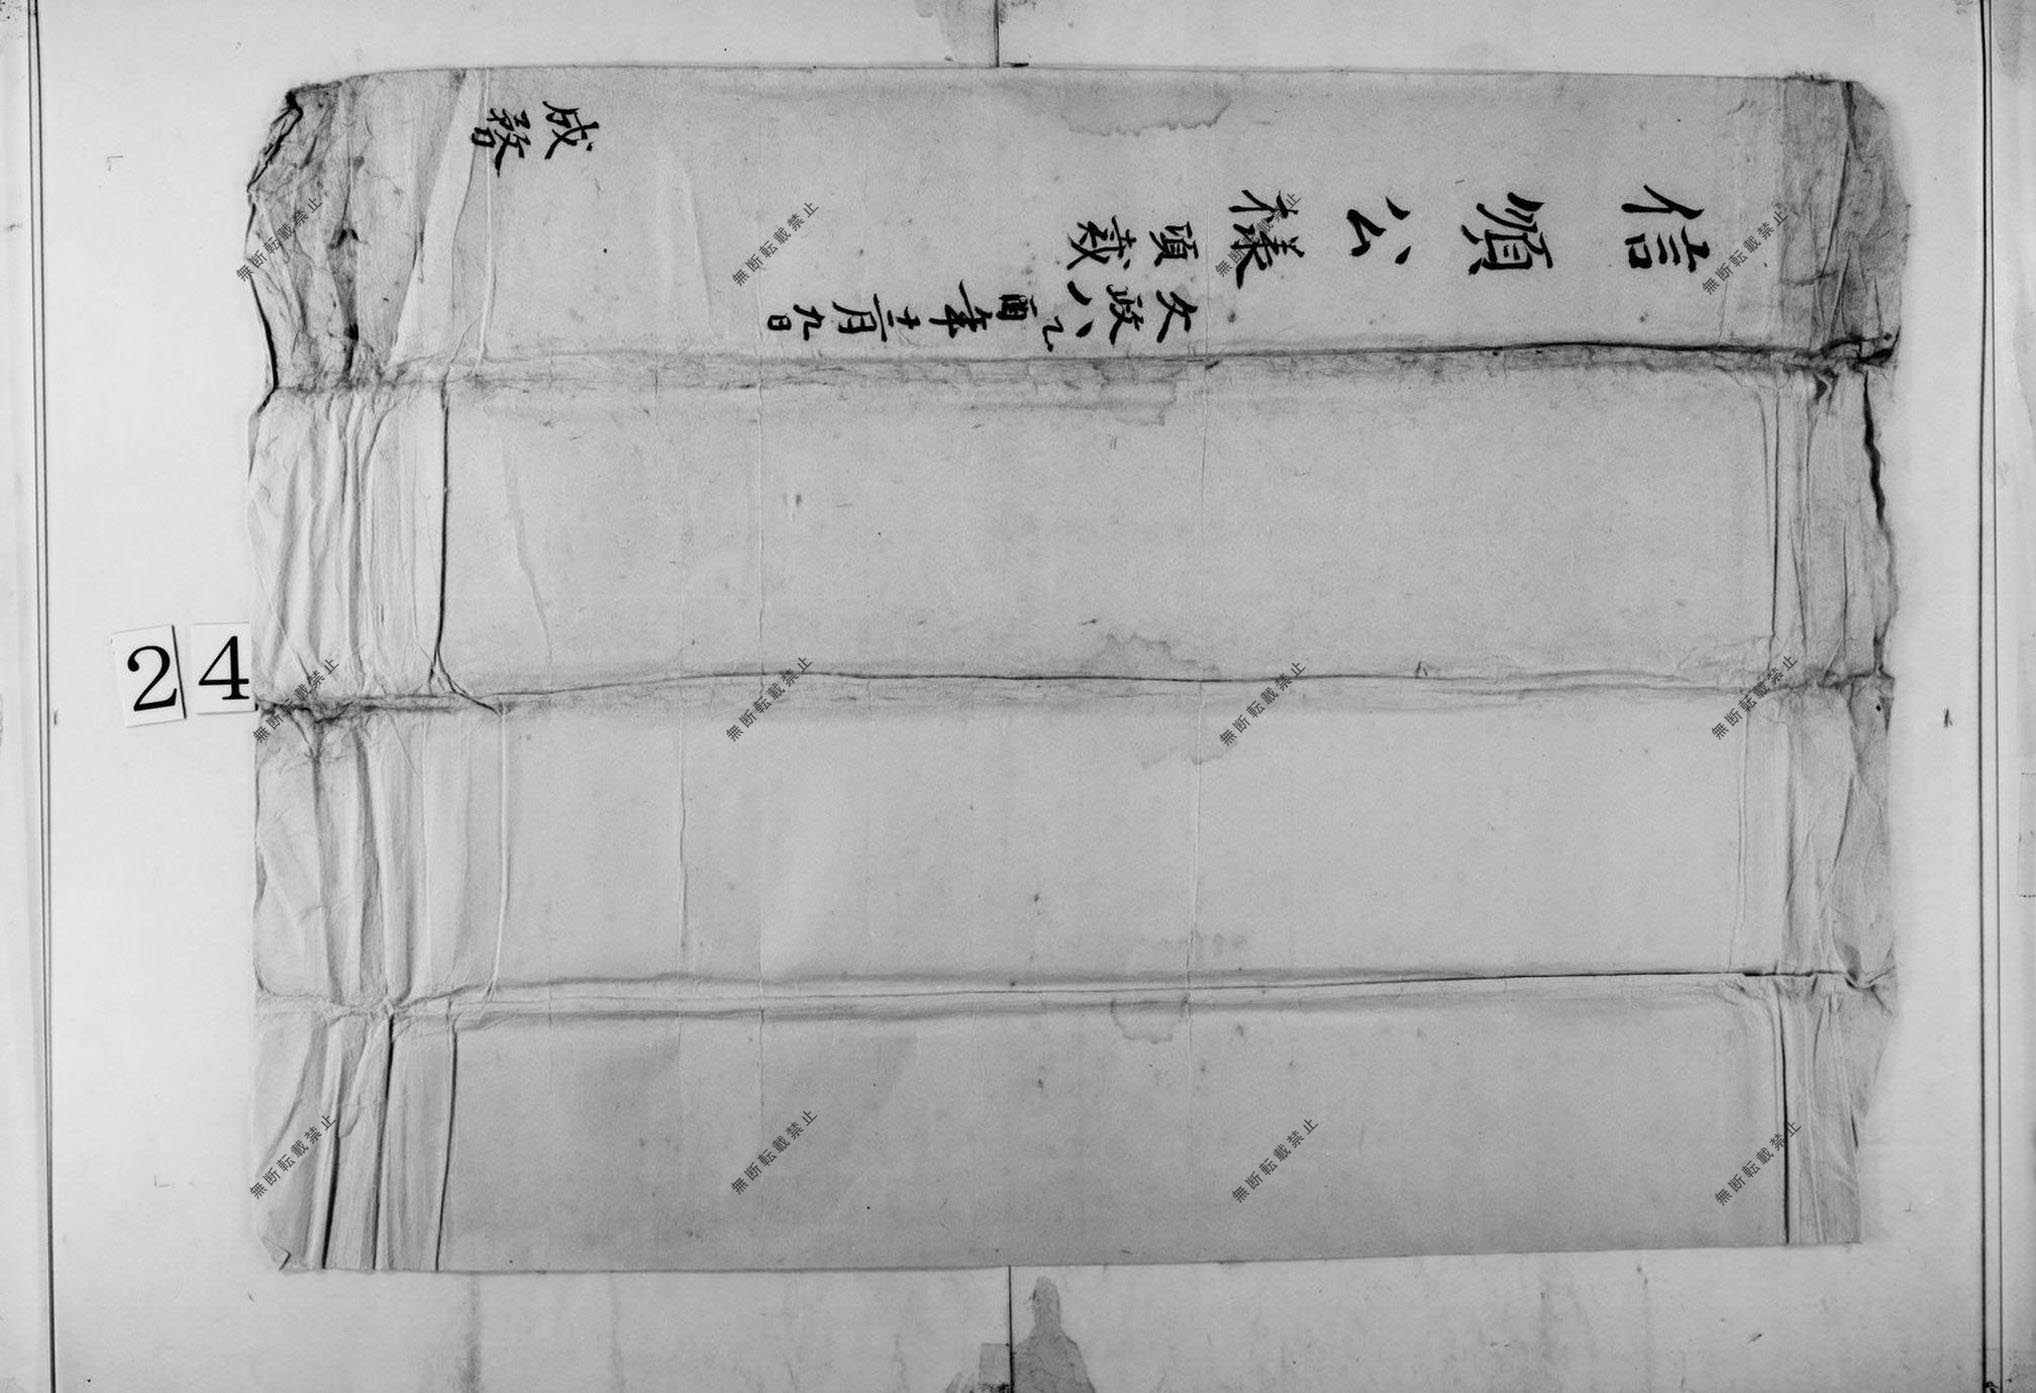 信順公様
頂戴
文政八乙酉年十二月九日
成
24
無断転載禁止
無断転載禁止
無断転載禁止
無断転載禁止
無断転載禁止
無断転載禁止
無断転載禁止
無断転載禁止
無断転載禁止
無断転載禁止
無断転載禁止
無断転載禁止